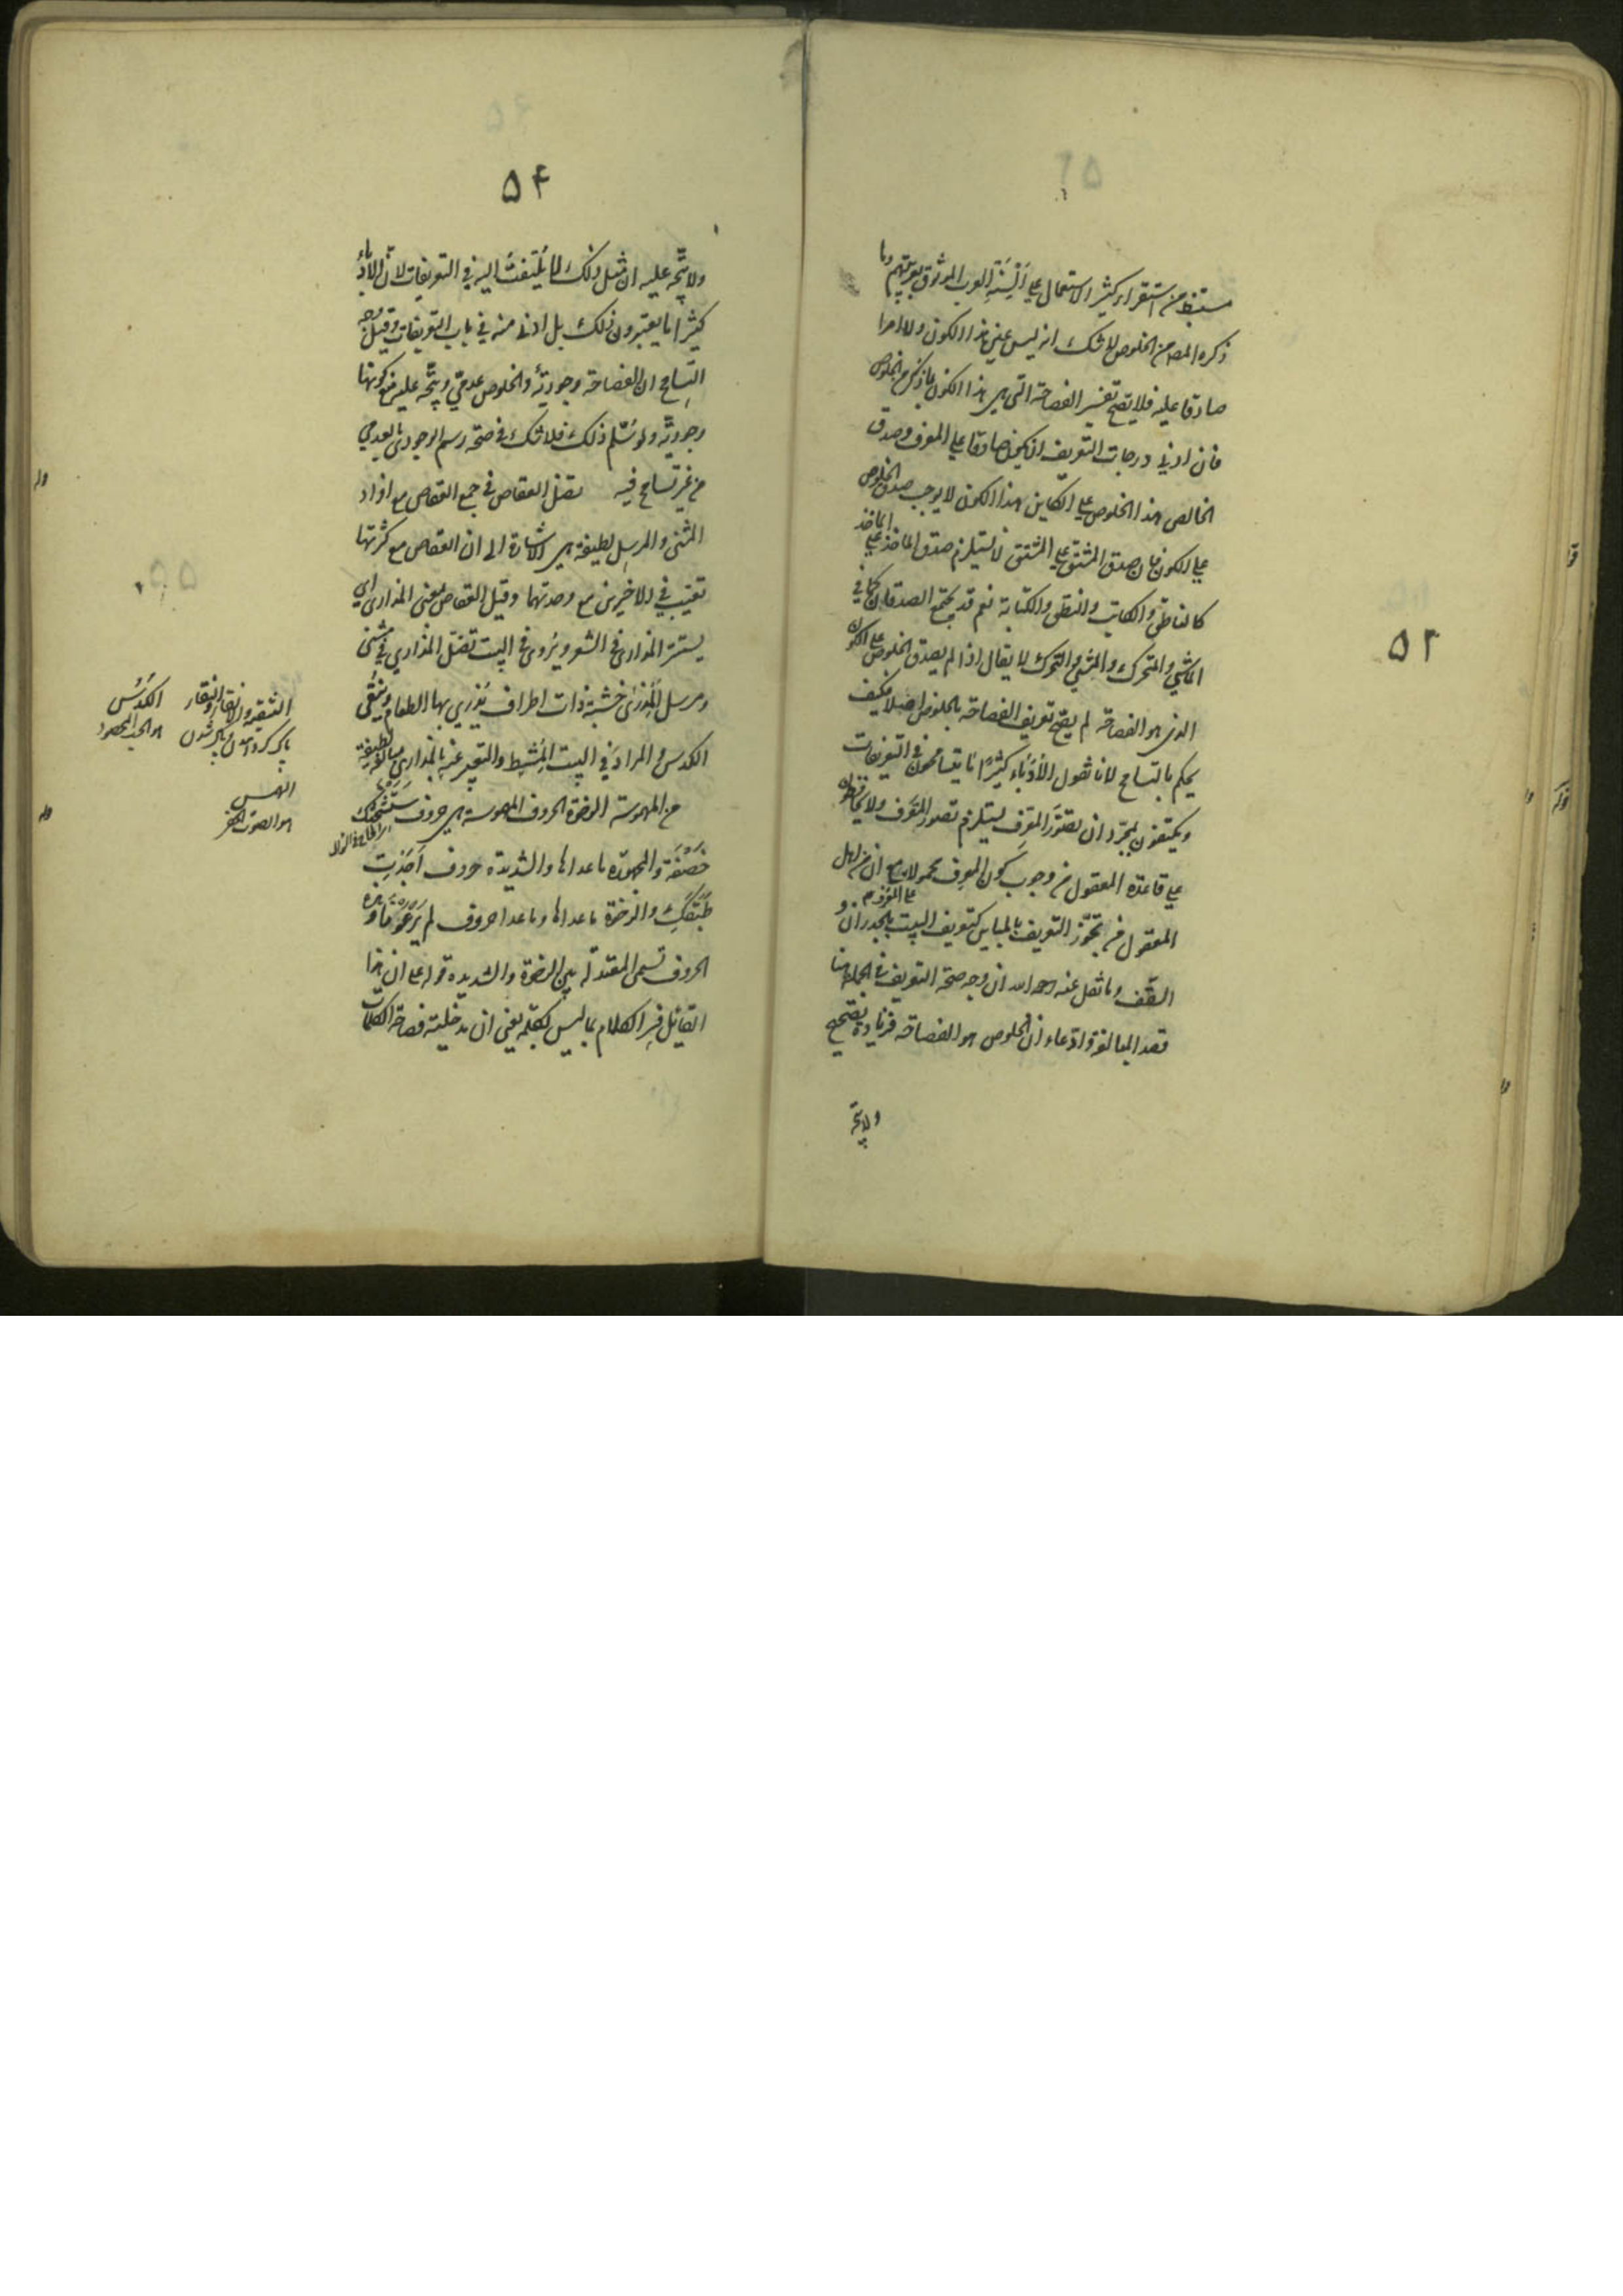 مستنبط من استقراء كثير الاستعمال على ألسنة العرب الموثوق بعربيتهم وما
ذكره المص من الخلوص لا شك انه ليس عين هذا الكون ولا امرا
صادقا عليه فلا يصح تفسير الفصاحة التي هي هذا الكون بما ذكر من الخلوص
فان ادنى درجات التعريف ان يكون صادقا على المعرف وصدق
الخالص بهذا الخلوص على الكاين بهذا الكون لا يوجب صدق الخلوص
على الكون فان صدق المشتق على المشتق لا يستلزم صدق الماخذ على الماخذ
كالناطق والكاتب والنطق والكتابة نعم قد يجتمع الصدقان كما في
الماشي والمتحرك والمشي والتحرك لا يقال اذا لم يصدق الخلوص على الكون
الذي هو الفصاحة لم يصح تعريف الفصاحة بالخلوص اصلا فكيف
يحكم بالتسامح لانا نقول الأدباء كثيرًا ما يتسامحون في التعريفات
ويكتفون بمجرد ان تصور المعرِف يستلزم تصور المعرَف ولا يحافظون
على قاعدة المعقول من وجوب كون المعرف محمولا مع ان من اهل
المعقول من يجوّز التعريف بالمباين كتعريف البيت بالجدران و
السقف وما نقل عنه رحمه الله ان وجه صحة التعريف في الجملة هنا
قصد المبالغة وادعاء ان الخلوص هو الفصاحة فزيادة تصحيح
ولا يتجه
٥٢
٥٤
ولا يتجه عليه ان مثل ذلك لما يُلتفتُ اليه في التعريفات لان الأدباء
كثيرا ما يعتبرون ذلك بل ادنى منه في باب التعريفات وقيل وجه
التسامح ان الفصاحة وجودية والخلوص عدميّ ويتجه عليه منع كونها
وجودية ولو سُلّم ذلك فلا شك في صحة رسم الوجودي بالعدمي
من غير تسامح فيه تضل العقاص في جمع العقاص مع افراد
المثنى والمرسل لطيفة هي الاشارة الى ان العقاص مع كثرتها
تغيب في الاخيرين مع وحدتهما وقيل العقاص بمعنى المدارى اي
يستتر المدارى في الشعر ويروى في البيت تضل المدارى في مثنى
ومرسل المِذرى خشبة ذات اطراف يُذرى بها الطعام ويُنقّى
الكدس والمراد في البيت المُشط والتعبير عنه بالمدارى مبالغة لطيفة
من المهموسة الرخوة الحروف المهموسة هي حروف ستشحثك
خصفة والمجهورة ما عداها والشديدة حروف أجدت
طبقك والرخوة ما عداها وما عدا حروف لم يَرْعَوْنا وهذه
الحروف تسمى المعتدلة بين الرخوة والشديدة قوله على ان هذا
القائل فسر الكلام بما ليس بكلمة يعني ان مدخلية فصاحة الكلمات
التنقية والانقاء
پاک کردن
النقاء
پاک شدن
الكُدْس
هو الحب المحصود
الهمس
هو الصوت الخفي